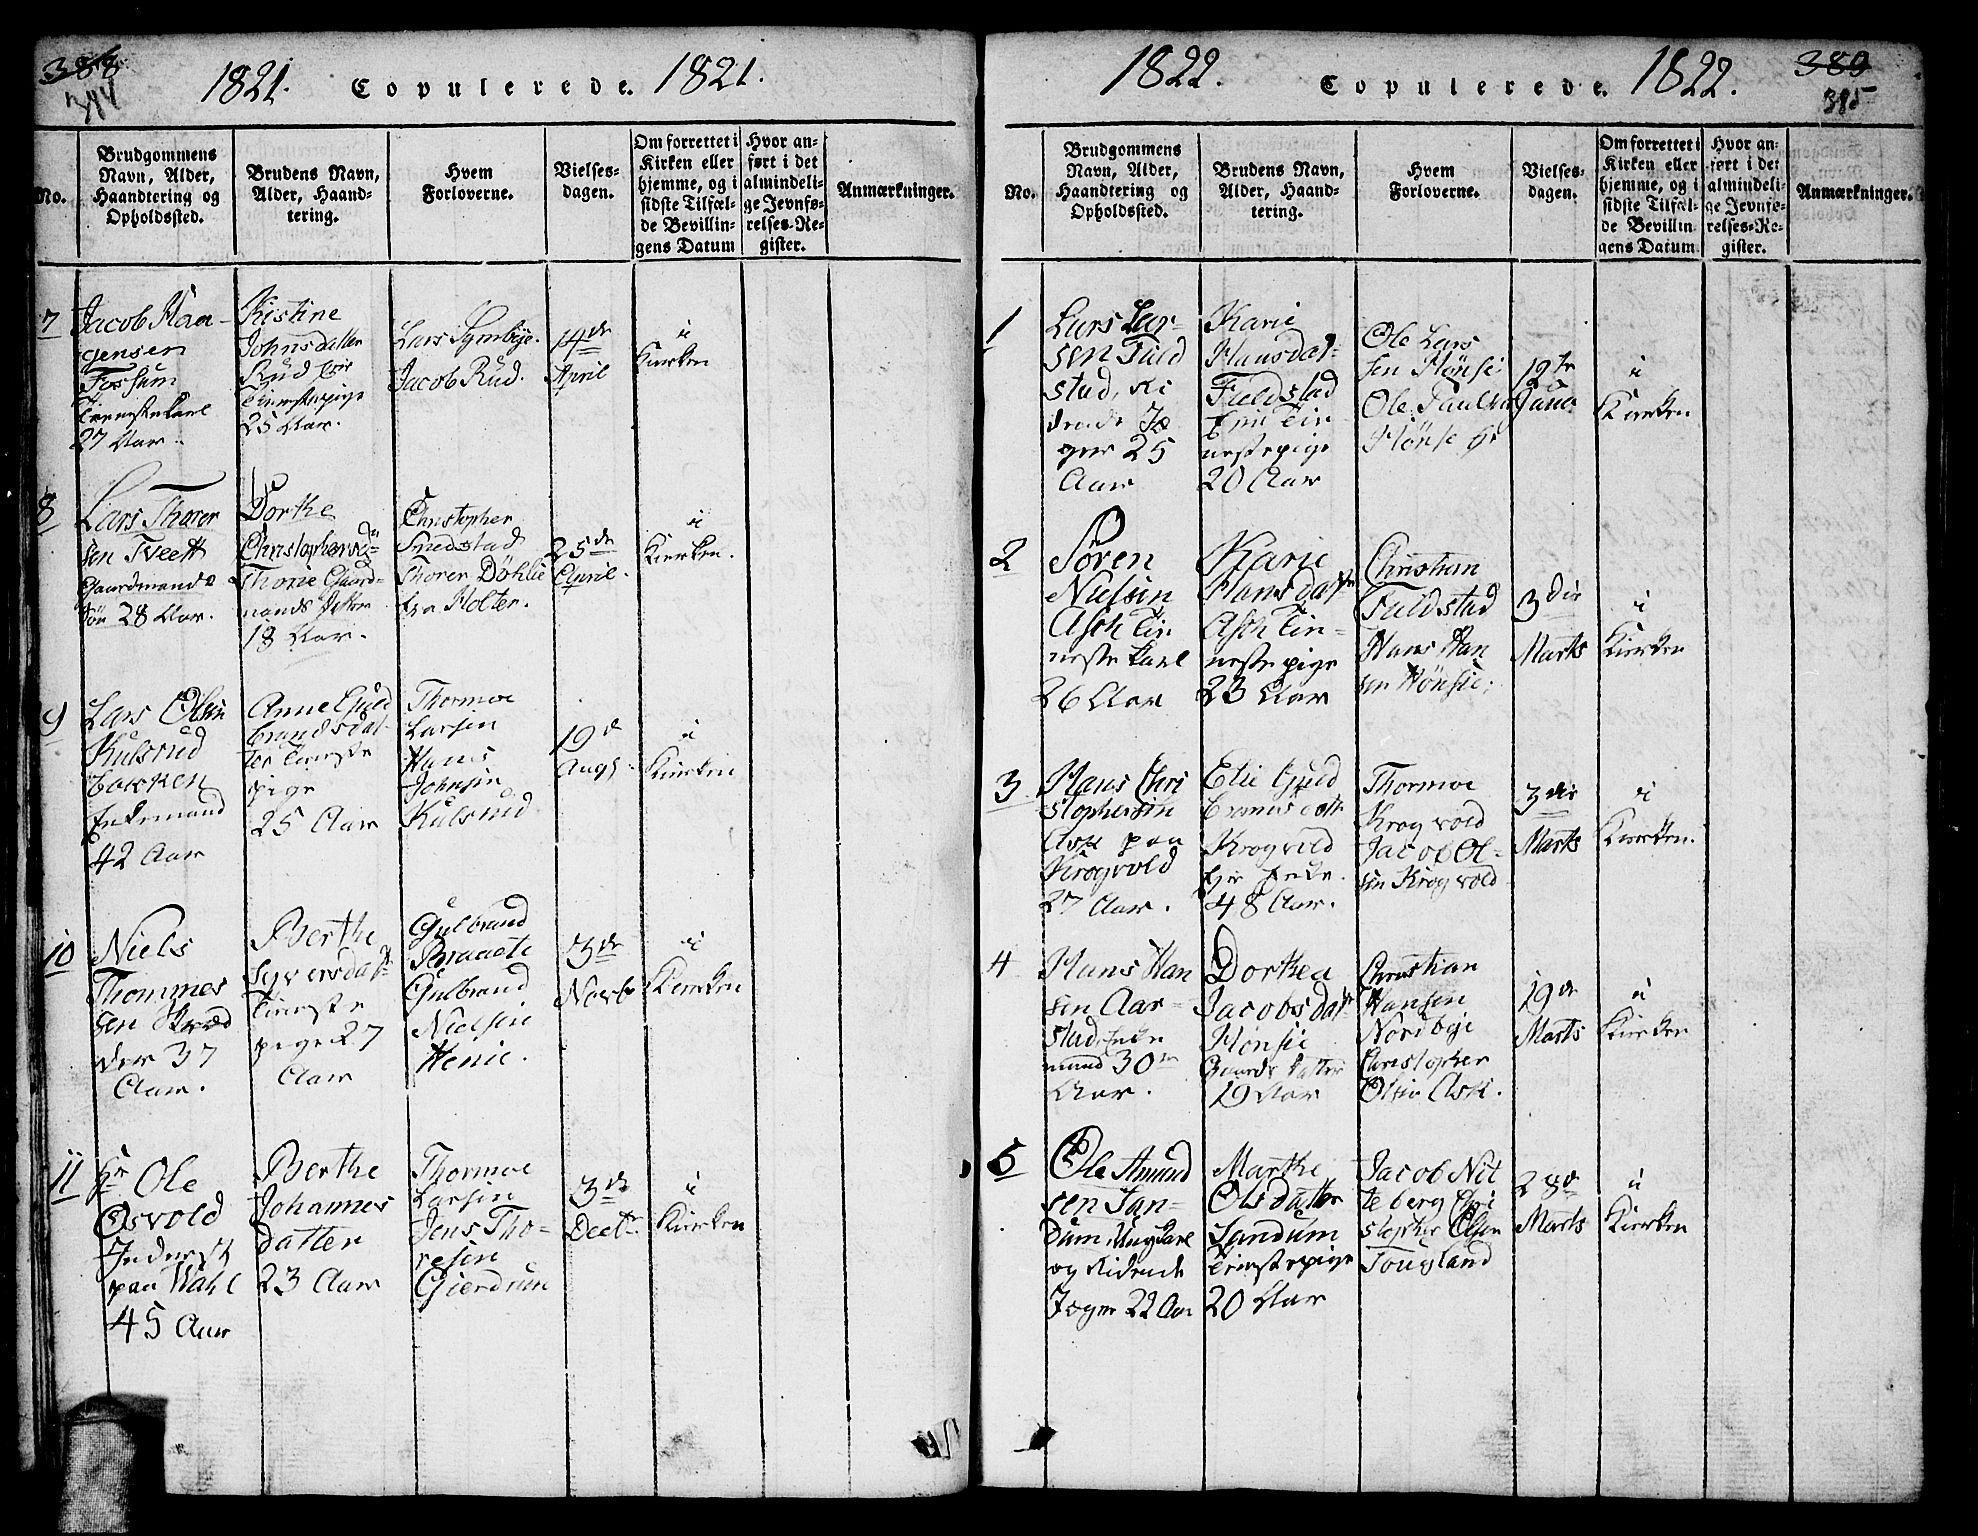 388
384
1821. Copulerede. 1821.
No.
Brudgommens
Navn, Alder,
Haandtering og
Opholdssted.
Brudens Navn,
Alder, Haand-
tering.
Hvem
Forloverne.
Vielses-
dagen.
Om forrettet i
Kirken eller
hjemme, og i
sidste Tilfæl-
de Bevillin-
gens Datum
Hvor an-
ført i det
almindeli-
ge Jevnfø-
relses-Re-
gister.
Anmærkninger.
7
Jacob Haa-
gensen
Fossum
Tienestekarl
27 Aar.
Kistine
Johnsdatter
Rud
Tienestepige
25 Aar.
Lars Synbÿe.
Jacob Rud.
14de
April
i
Kierken
8
Lars Thorer
sen Tveett
Gaardmands
Søn 28 Aar.
Dorthe
Christophersd
Thorie Gaard-
mands Datter
18 Aar.
Christopher
Smedstad
Thorer Döhlie
fra Holter.
25de
April.
i
Kierken.
9
Lars Olsen
Kulsrud
Enkemand
42 Aar
Anne Guld
brandsdat-
ter Tieneste
pige
25 Aar
Thormoe
Larsen
Hans
Johnsen
Kulsrud.
19d
Augs.
i
Kierken
10
Niels
Thommes
sen
37
Aar.
Berthe
Syversdatr
Tieneste
pige 27
Aar
Gulbrand
Braaete
Gulbrand
Nielsen
Henie.
3de
Novbr
i
Kierken
11
Hr Ole
Osvold
Inderst
paa Wahl
45 Aar
Berthe
Johannes
datter
23 Aar
Thormoe
Larsen
Jens Tho-
resen
Gierdrum
3de
Decbr
i
Kierken
389
385
1822. Copulerede. 1822.
No.
Brudgommens
Navn, Alder,
Haandtering og
Opholdssted.
Brudens Navn,
Alder, Haand-
tering.
Hvem
Forloverne.
Vielses-
dagen.
Om forrettet i
Kirken eller
hjemme, og i
sidste Tilfæl-
de Bevillin-
gens Datum.
Hvor an-
ført i det
almindeli-
ge Jevnfø-
relses-Re-
gister.
Anmærkninger.
1
Lars Lar-
sen Fuld
stad, Ri
dende Jæ
ger 25
Aar
Karie
Hansdat-
Fuldstad
Tie-
nestepige
20 Aar
Ole Lars
sen Hönsie
Ole Paulsen
Hönsie
19de
Janr
i
Kierken
2
Sören
Nielsen
Ash Tie
neste karl
26 Aar
Karie
Hansdattr
Ash Tie-
nestepige
23 Aar
Christian
Fuldstad
Hans Han
sen Hönsie.
3die
Marts
i
Kierken
3
Hans Chri
stophersen
Ask paa
Krogvold
27 Aar.
Elie Guld
brandsdatr
Krogvold
Enke.
48 Aar.
Thormoe
Krogvold
Jacob Ol-
sen Krogvold
3die
Marts
i
Kierken.
4
Hans Han
sen Aar-
stad Enke
mand 30
Aar.
Dorthea
Jacobsdatr
Hönsie
Gaards datter
19 Aar
Christian
Hansen
Nordbye
Christopher
Olsen Ask.
19de
Marts
i
Kierken
5
Ole Amund
sen San-
dum Ungkarl
og Ridende
Jæger 22 Aar
Marthe
Olsdatter
Sandum
Tienestepige
20 Aar
Jacob Nit
teberg Chri
stopher Olsen
Tougland
28de
Marts
i
Kierken